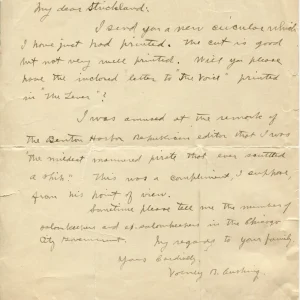 My dear Strickland:
I send you a new circular which
I have just had printed. The cut is good
but not very well printed. Will you please
have the inclosed letter to "The Voice" printed
in "The Lever"?
I was amused at the remark of
the Benton Harbor Republican editor that I was
the mildest mannered pirate that ever scuttled
a ship." This was a compliment, I suppose,
from his point of view.
Sometime please tell me the number of
saloonkeepers and ex-saloonkeepers in the Chicago
City Government. My regards to your family
Yours Cordially,
Volney B. Cushing.